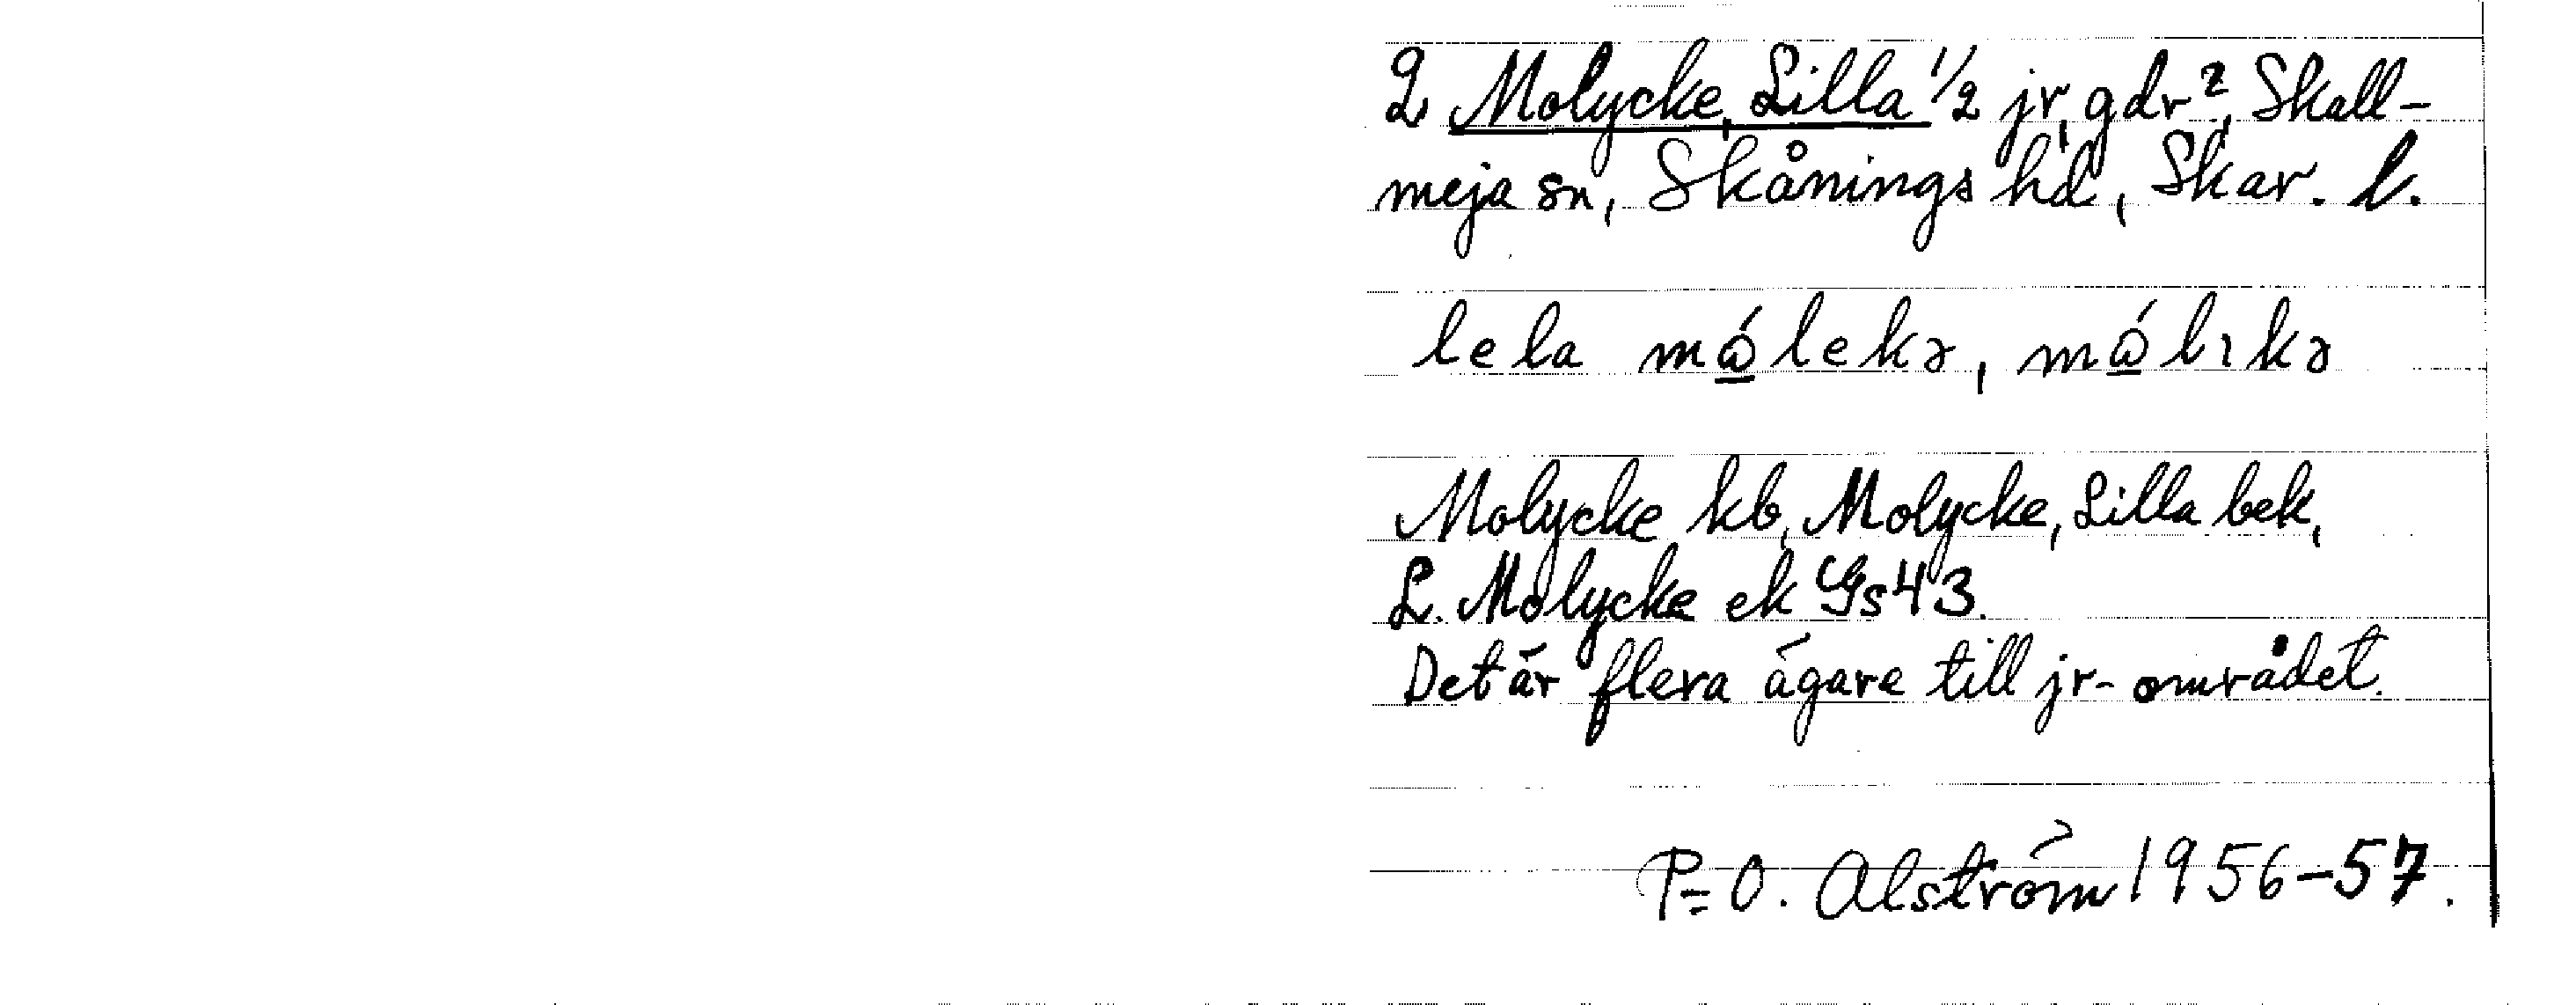 2 Molycke, Lilla 1/2 jr, gdr², Skall-
meja sn, Skånings hd, Skar. l.
lela mǻlekə, mǻlıkə
Molycke kb, Molycke, Lilla bek,
L. Molycke ek Gs43.
Det är flera ägare till jr-området.
P=O. Alström 1956-57.